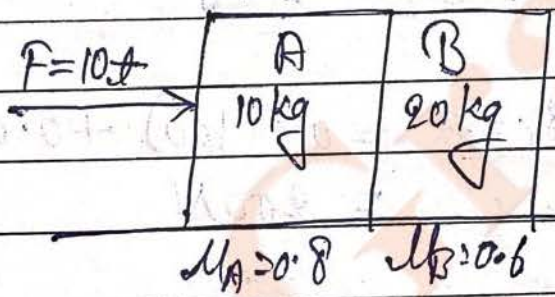 F=10t
A
B
10 kg
20 kg
μA=0.8 μB=0.6